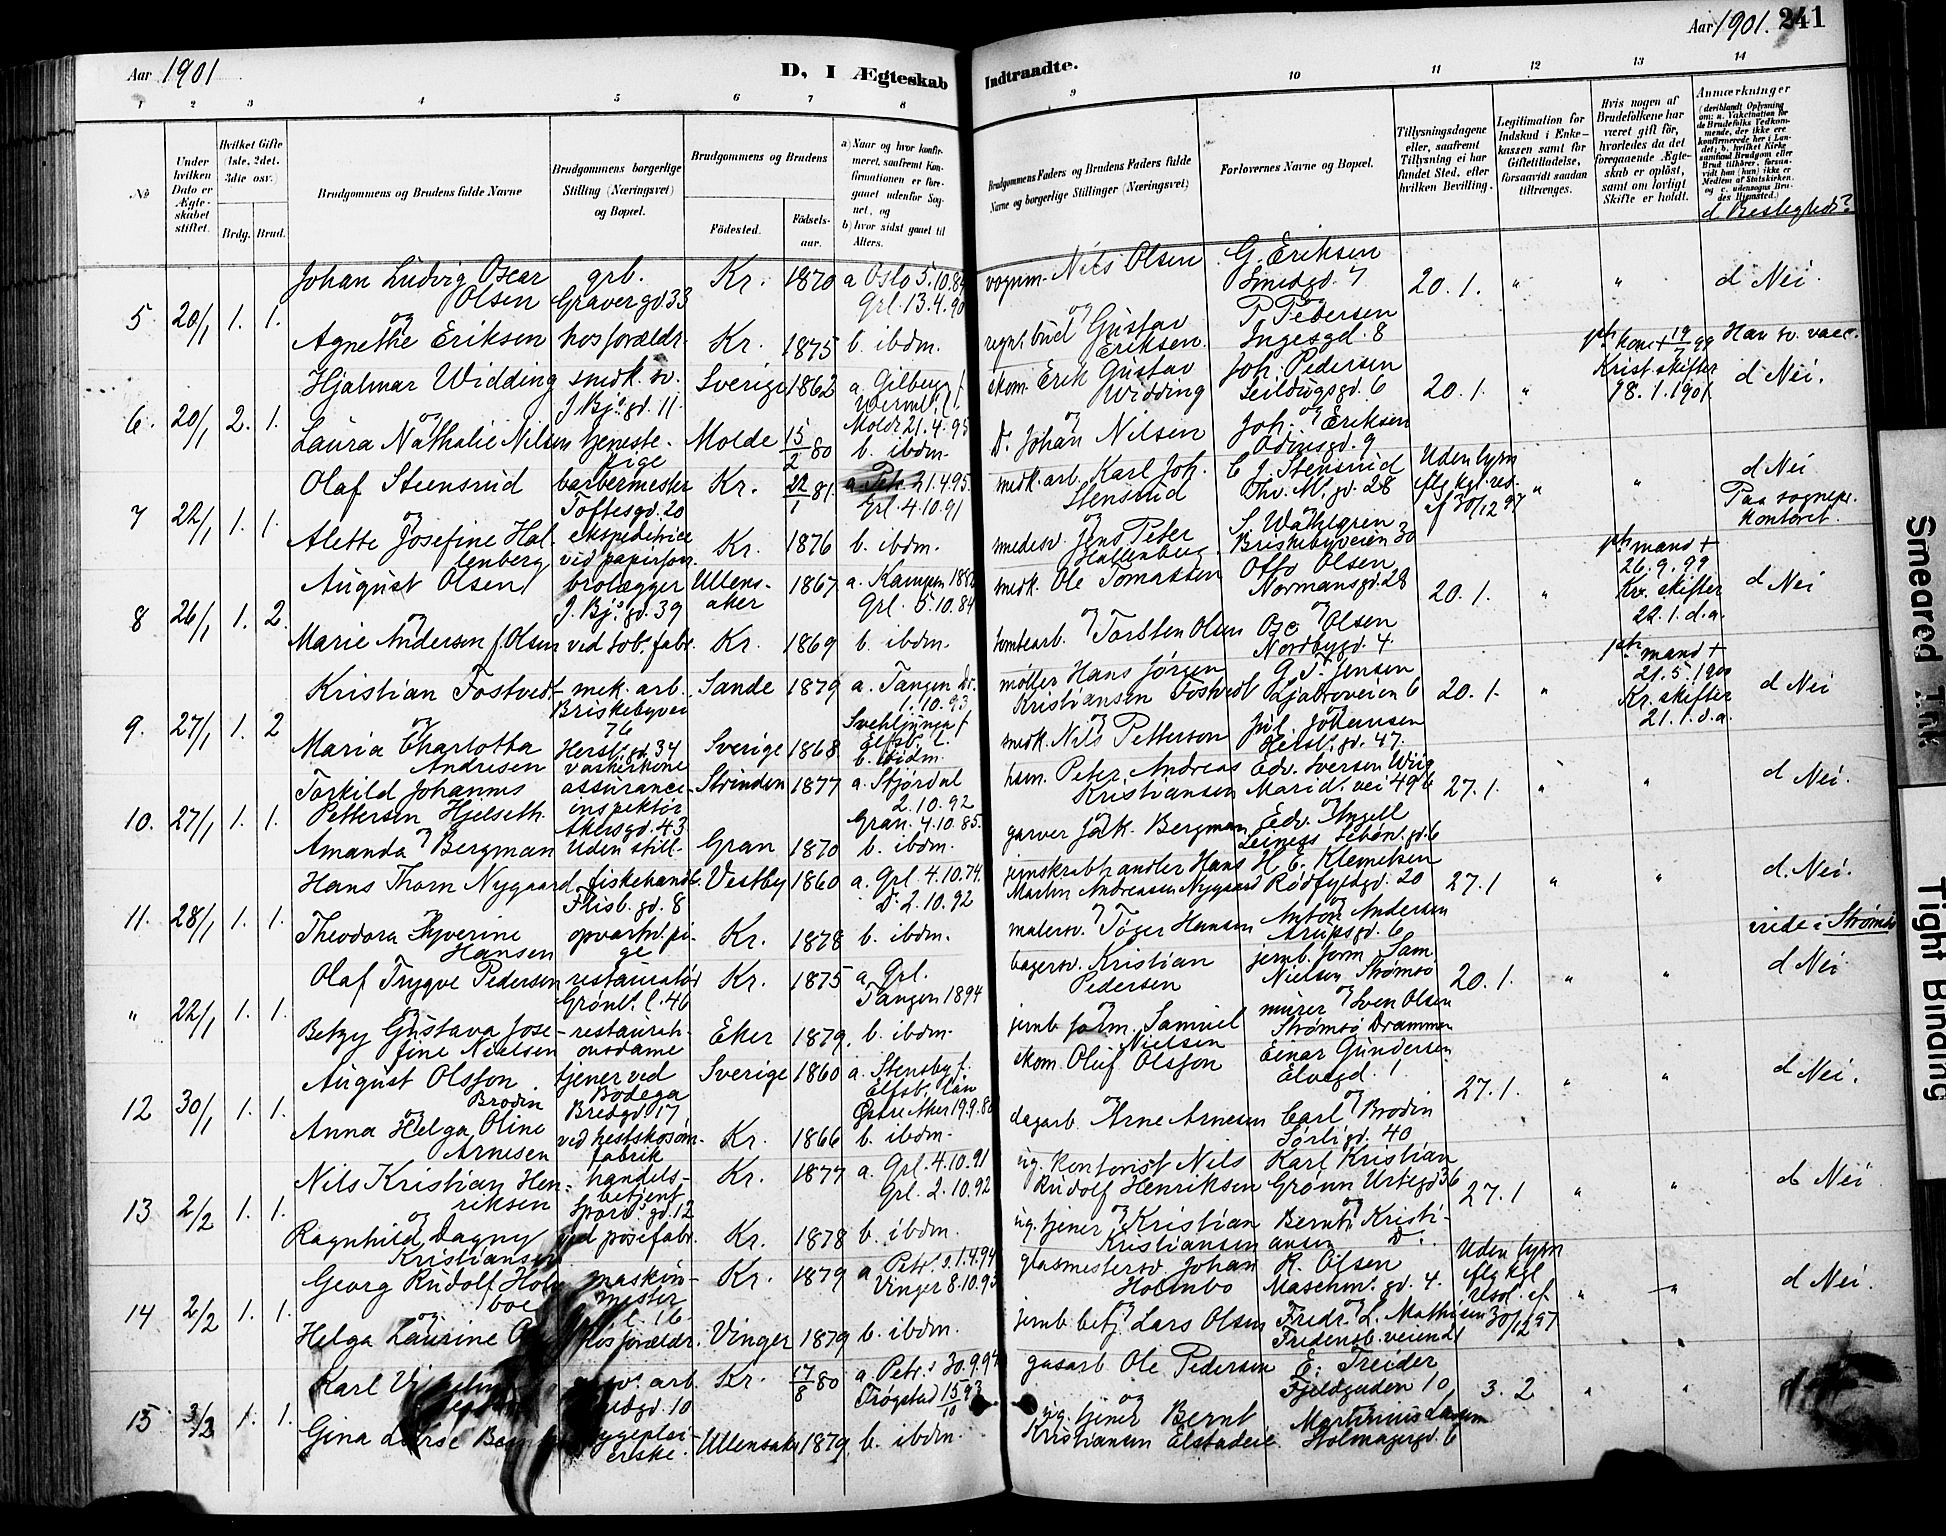 Aar 1901
D, I Ægteskab
Indtraadte.
Aar 1901. 241
1 2 3 4 5 6 7 8
9 10 11 12 13 14
No
Under hvilken Dato er Ægteskabet stiftet.
Hvilket Gifte (1ste, 2det, 3die osv.)
Brdg. Brud.
Brudgommens og Brudens fulde Navne
Brudgommens borgerlige Stilling (Næringsvei) og Bopæl.
Brudgommens og Brudens
Födested.
Födselsaar.
a) Naar og hvor konfirmeret, saafremt Konfirmationen er foregaaet udenfor Sognet, og
b) hvor sidst gaaet til Alters.
Brudgommens Faders og Brudens Faders fulde Navne og borgerlige Stillinger (Næringsvei)
Forlovernes Navne og Bopæl.
Tillysningsdagene eller, saafremt Tillysning ei har fundet Sted, efter hvilken Bevilling.
Legitimation for Indskud i Enkekassen samt for Giftetilladelse, forsaavidt saadan tiltrænges.
Hvis nogen af Brudefolkene har været gift för, hvorledes da det foregaaende Ægteskab er oplöst, samt om lovligt Skifte er holdt.
Anmærkninger
d Beslegtede?
5 20/1 1. 1.
Johan Ludvig Oscar Olsen
grb. Gravergd 33
Kr. 1870
a Oslo 5.10.84
Grl. 13.4.90
vognm. Nils Olsen
G. Eriksen
Smedgd. 7
20. 1. " "
d Nei.
og
Agnethe Eriksen
hos forældr.
Kr. 1875 b. ibdm.
og
Gustav Eriksen.
P Pedersen
Ingesgd. 8
6. 20/1 2. 1.
Hjalmar Widding
snedk. sv.
J. Bj.s gd. 11.
Sverige 1862
skom. Erik Gustav Widding
Joh. Pedersen
20. 1. "
Krist. skifter
18. 1. 1901
d Nei.
og
Laura Nathalie Nilsen
tjenestepige
Molde 15/2 80
Molde 21.4.95
b. ibdm.
og
Johan Nilsen
Joh. Eriksen
Odinsgd. 9
7 22/1 1. 1.
Olaf Steensrud
barbermester
Toftesgd. 20
Kr. 22/1 81.
21.4.95.
Grl. 4.10.91
Karl Joh. Stensrud
C J. Stensrud
Thv. M. gd. 28
Uden lysn
flg kgl. res.
af 30/12 97
" "
d Nei
Paa sognepr. kontoret.
og
Alette Josefine Hallenberg
ekspeditrice
Kr. 1876 b. ibdm.
Jens Peter Hallenberg
S. Wahlgren
Briskebyveien 30
8 26/1 1. 2.
August Olsen
brolægger
J. Bj.s gd. 39
Ullensaker 1867
a. Kampen
Grl. 5.10.84
snedk. Ole Tomassen
Otto Olsen
Normansgd. 28
20. 1. "
mand +
26. 9. 99
Kr. skifter
22. 1. d. a.
d Nei
og
Marie Andersen f. Olsen
ved tob. fabr.
Kr. 1869 b. ibdm.
tomtearb. Torsten Olsen
og
Olsen
Nordbygd. 4
9. 27/1 1. 2
Kristian Fostvedt
mek. arb.
Briskebyvei 76
Sande 1879
a. Tangen Dr.
1. 10. 93
møller Hans Jørgen Kristiansen Fostvedt
G. T. Jensen
Ljabroveien 6
20. 1. "
mand +
21. 5. 1900
Kr. skifter
21. 1. d. a.
d Nei
og
Maria Charlotta Andresen
Hersl. gd. 34
vaskerkone
Sverige 1868
b. ibidm.
snedk. Nils Petterson
Jul. Johansen
Hersl. gd. 47.
10. 27/1 1. 1.
Torkild Johannes Pettersen Hjelseth
assuranceinspektør
Akersgd. 43
Strinden 1877
a. Stjørdal
2. 10. 92
husm. Peter Andreas Kristiansen
Edv. Iversen Wiig
Marid. vei 49 b
27. 1. " "
d Nei.
og
Amanda Bergman
Uden still.
Gran 1870
Gran. 4.10.85.
b. ibdm.
garver Jak. Bergman
Edv. Angell
11. 28/1 1. 1.
Hans Thorn Nygaard
fiskehandl.
Flisb. gd. 8
Vestby 1860
a. Grl. 4.10.74.
D. 2. 10. 92
jernskrabhandler Hans Martin Andreassen Nygaard
H. C. Klemetsen
Rødfyldgd. 20
27. 1 " "
d. Nei.
Theodora Hyverine Hansen
opvartn. pige
Kr. 1878 b. ibdm.
malersv. Tøger Hansen
Anton Andersen
Arupsgd. 6
viede i Strømsø
" 22/1 1. 1.
Olaf Trygve Pedersen
restauratør
Grønl. l. 46
Kr. 1875
a. Grl.
Tangen 1894
bagersv. Kristian Pedersen
jernb. form. Sam. Nielsen Strømsø
20. 1. " "
d Nei
og
Betzy Gustava Josefine Nielsen
restaurationsdame
Eker 1879. b. ibdm.
jernb. form. Samuel Nielsen
murer Sven Olsen
Strømsø Drammen
12 30/1 1. 1.
August Olsson Brodin
tjener ved Bodega
Bredgd. 17
Sverige 1860
a. Stensby f.
Elfsb. Län
skom. Oluf Olsson
Einar Gundersen
Elvegd. 1
27. 1. " "
d Nei.
og
Anna Helga Oline Arnesen
ved hestskosømfabrik
Kr. 1866
Østre Aker 19.9.80
b. ibdm.
dagarb. Arne Arnesen
Carl Brodin
Sørligd. 40
13 2/2 1. 1.
Nils Kristian Henriksen
handelsbetjent
Kr. 1877
a. Grl. 4.10.91
Grl. 2.10.92
ug. kontorist Nils Rudolf Henriksen
Karl Kristian Grønn Urtegd 36
27. 1 " "
d Nei
og
Ragnhild Dagny Kristiansen
ved posefabr.
Kr. 1878 b. ibdm.
ug. tjener Kristian Kristiansen
Bernt Kristiansen D.
14 2/2 1. 1.
Georg Rudolf Holmboe
maskinmester
Kr. 1879
a Petr.s 1.4.94
Vinger 8.10.93
glasmestersv. Johan Holmbo
R. Olsen
Maschm. gd. 4.
Uden lysn
flg kgl
resol. af 30/12 97
" "
d Nei.
og
Helga Laurine
Hos forældr.
Vinger 1879 b. ibdm.
jernb. betj. Lars Olsen
Fredr. L. Mathisen
Fredensb. veien
15 3/2 1. 1.
Karl
arb.
Kr. 17/8 80
a. Petr.s 30.9.94
gasarb. Ole Pedersen
E. Treider
Fjeldgaden 10
3. 2 " "
Gina Lærse
Ullensaker 1879. b. ibdm.
Trøgstad 15/10 93
og
ug. tjener Bernt Kristiansen Elstadeie
Martinius Larsen
Holmagergd. 6
Smeared Ink
Tight Binding